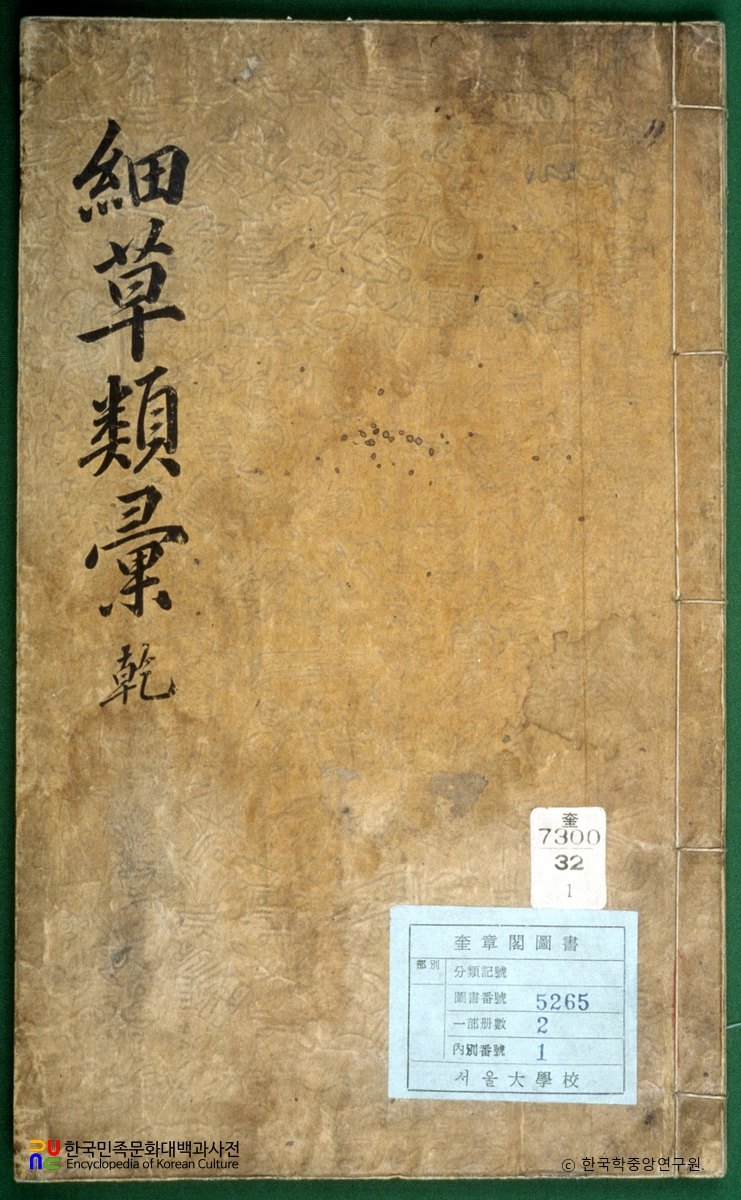 細草類彙 乾
奎
7300
32
1
奎章閣圖書
部別
分類記號
圖書番號 5265
一部册數 2
內別番號 1
서울大學校
한국민족문화대백과사전
Encyclopedia of Korean Culture
ⓒ 한국학중앙연구원.